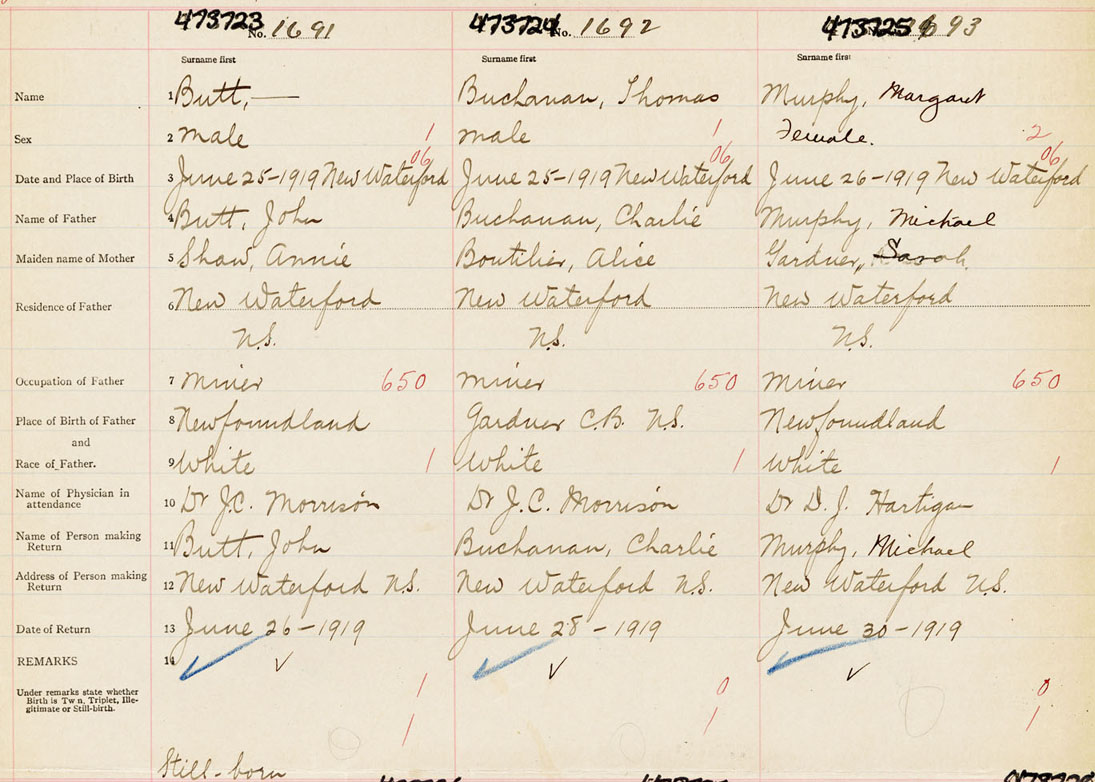 473723 No. 1691 473724 No. 1692 473725 1693
Surname first Surname first Surname first
Name 1 Butt, — Buchanan, Thomas Murphy, Margaret
Sex 2 male 1 male 1 Female. 2
06 06 06
Date and Place of Birth 3 June 25-1919 New Waterford June 25-1919 New Waterford June 26-1919 New Waterford
Name of Father 4 Butt, John Buchanan, Charlie Murphy, Michael
Maiden name of Mother 5 Shaw, Annie Boutilier, Alice Gardner, Sarah
Residence of Father 6 New Waterford New Waterford New Waterford
N.S. N.S. N.S.
Occupation of Father 7 miner 650 miner 650 miner 650
Place of Birth of Father 8 Newfoundland Gardner C.B. N.S. Newfoundland
and
Race of Father. 9 White 1 White 1 White 1
Name of Physician in
attendance 10 Dr J.C. Morrison Dr J.C. Morrison Dr D.J. Hartigan
Name of Person making
Return 11 Butt, John Buchanan, Charlie Murphy, Michael
Address of Person making
Return 12 New Waterford N.S. New Waterford N.S. New Waterford N.S.
Date of Return 13 June 26-1919 June 28-1919 June 30-1919
REMARKS 14
Under remarks state whether 1 0 0
Birth is Tw n, Triplet, Ille-
gitimate or Still-birth.
1 1 1
Still-born